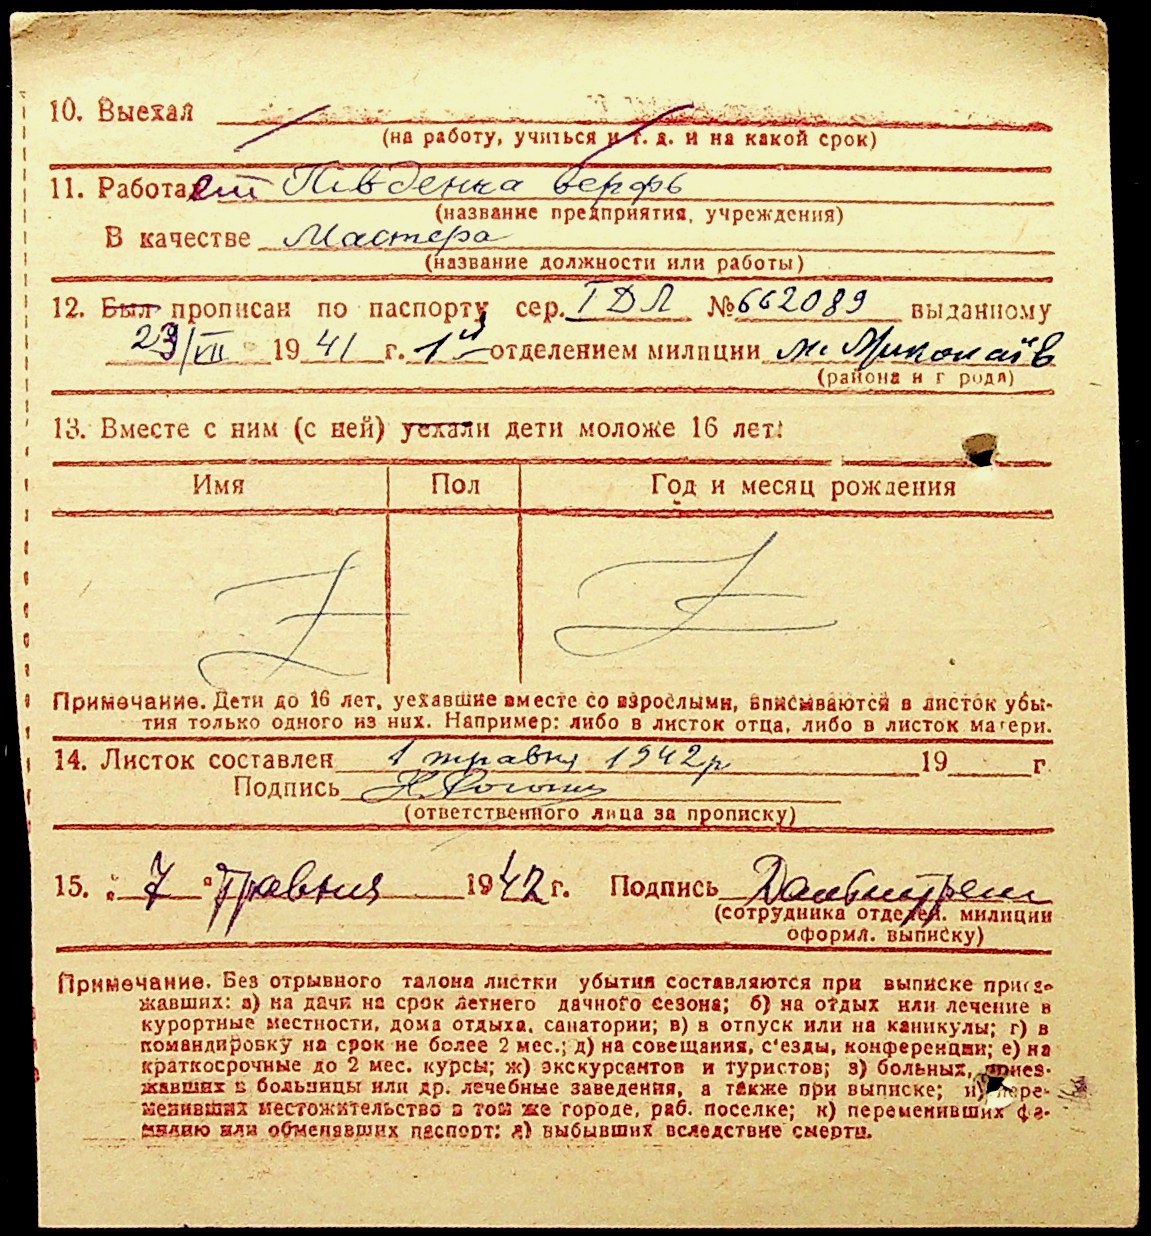 10. Выехал
(на работу, учиться и т. д. и на какой срок)
11. Работает Південна верфь
(название предприятия, учреждения)
В качестве Мастера
(название должности или работы)
12. Был прописан по паспорту сер. ТДЛ № 662089 выданному
23/VII 1941 г. 1й отделением милиции м. Миколаїв
(района и г рода)
13. Вместе с ним (с ней) уехали дети моложе 16 лет:
Имя Пол Год и месяц рождения
Примечание. Дети до 16 лет, уехавшие вместе со взрослыми, вписываются в листок убы-
тия только одного из них. Например: либо в листок отца, либо в листок матери.
14. Листок составлен 1 травня 1942 р 19 г
Подпись
(ответственного лица за прописку)
15. „ 7 " Травня 1942 г. Подпись
(сотрудника отделен. милиции
оформл. выписку)
Примечание. Без отрывного талона листки убытия составляются при выписке приез-
жавших: а) на дачи на срок летнего дачного сезона; б) на отдых или лечение в
курортные местности, дома отдыха, санатории; в) в отпуск или на каникулы; г) в
командировку на срок не более 2 мес.; д) на совещания, с'езды, конференции; е) на
краткосрочные до 2 мес. курсы; ж) экскурсантов и туристов; з) больных, приез-
жавших в больницы или др. лечебные заведения, а также при выписке; и) пере-
менивших местожительство в том же городе, раб. поселке; к) переменивших фа-
милию или обменявших паспорт; л) выбывших вследствие смерти.